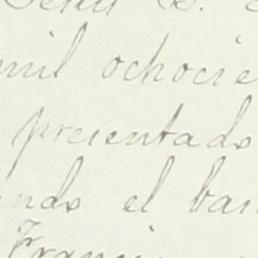 mil ochocie
presentado
endo el bau
Francis